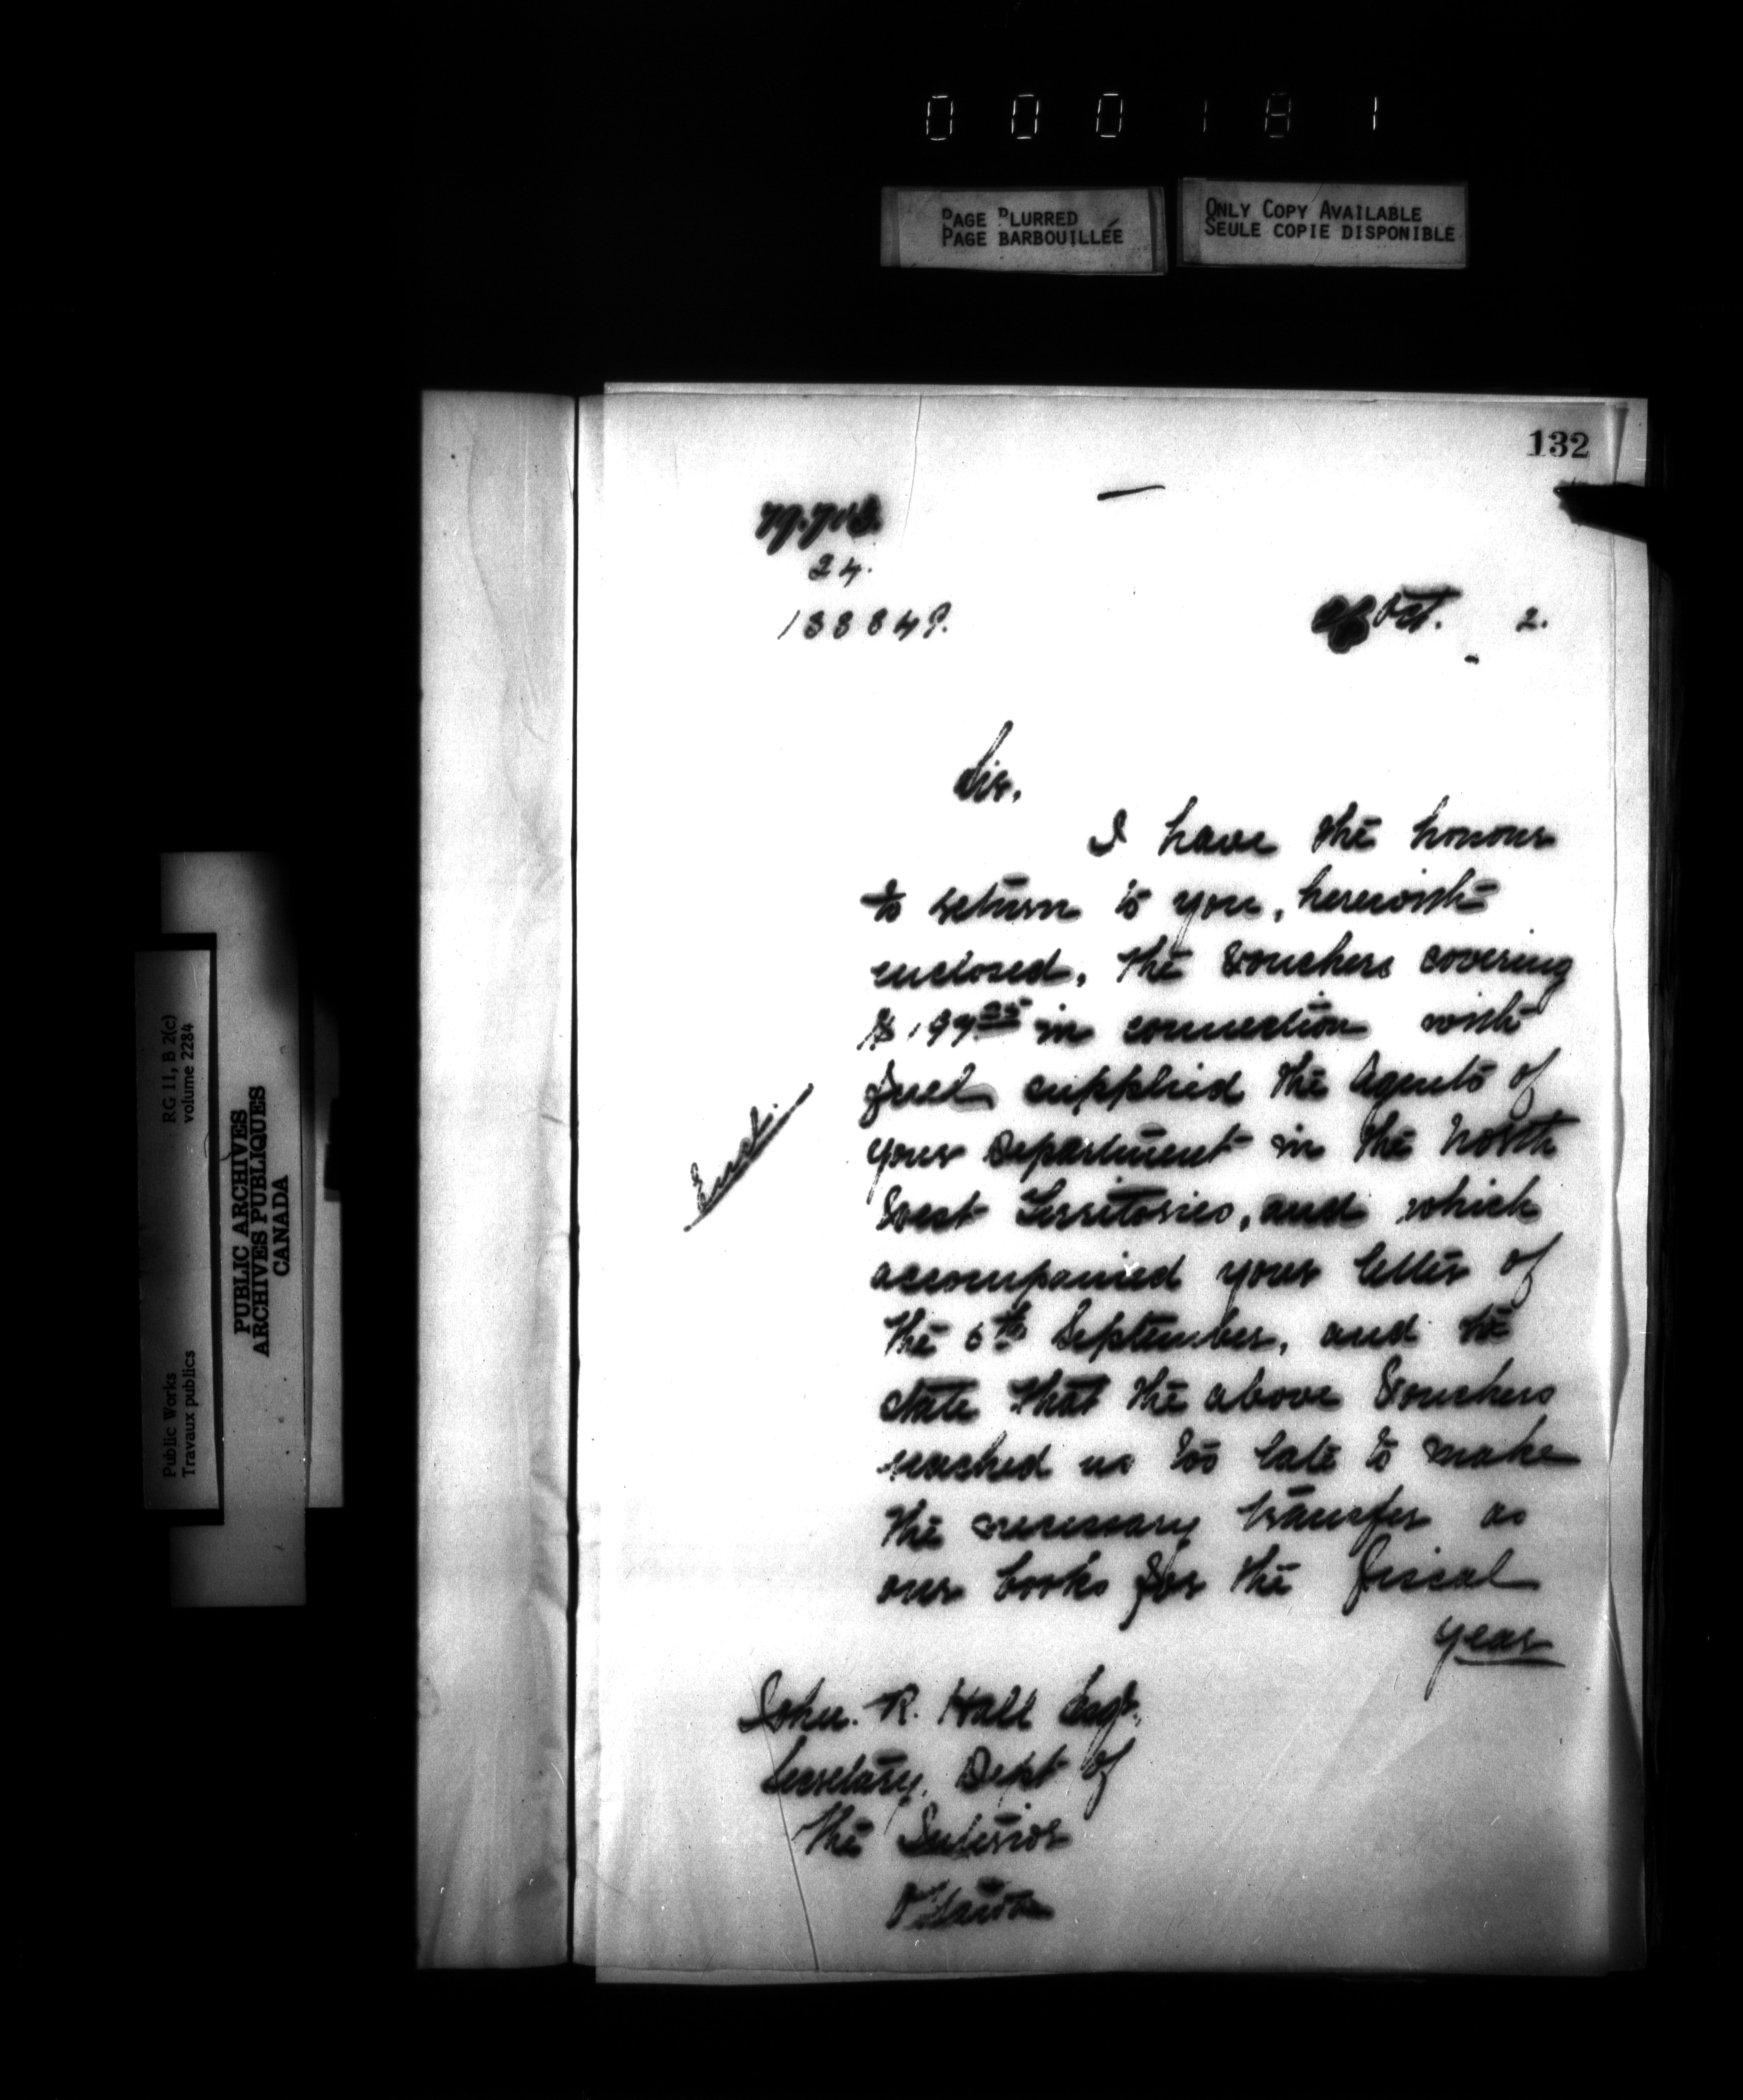 000181
PAGE BLURRED
PAGE BARBOUILLÉE
ONLY COPY AVAILABLE
SEULE COPIE DISPONIBLE
132
24.
133849.
Oct. 2.
Sir,
I have the honour
to return to you, herewith
enclosed, the vouchers covering
$ 197.25 in connection with
fuel supplied the Agents of
your Department in the North
West Territories, and which
accompanied your letter of
the 6th September, and to
state that the above Vouchers
reached us too late to make
the necessary transfer as
our books for the fiscal
year
Encl.
John. R. Hall Esqr.
Secretary, Dept of
the Interior
Ottawa
Public Works
Travaux publics
RG 11, B 2(c)
volume 2284
PUBLIC ARCHIVES
ARCHIVES PUBLIQUES
CANADA